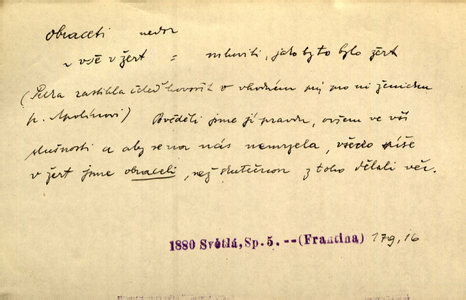 obraceti nedok
vše v žert = mluviti, jako by to bylo žert
(Petra zastihla čeleď hovořit o vhodném pro ni ženichu
p. Apolínovi) Pověděli jsme jí pravdu, ovšem ve vší
slušnosti a aby se na nás nemyela, všecko spíše
v žert jsme obraceli, než skutečnou z toho dělali věc.
1880 Světlá, Sp. 5. -- (Frantina) 179, 16